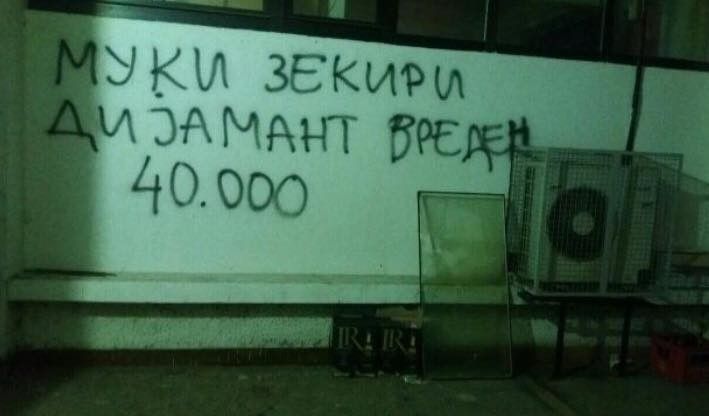 МУКИ ЗЕКИРИ
ДИЈАМАНТ ВРЕДЕН
40.000
LR LR